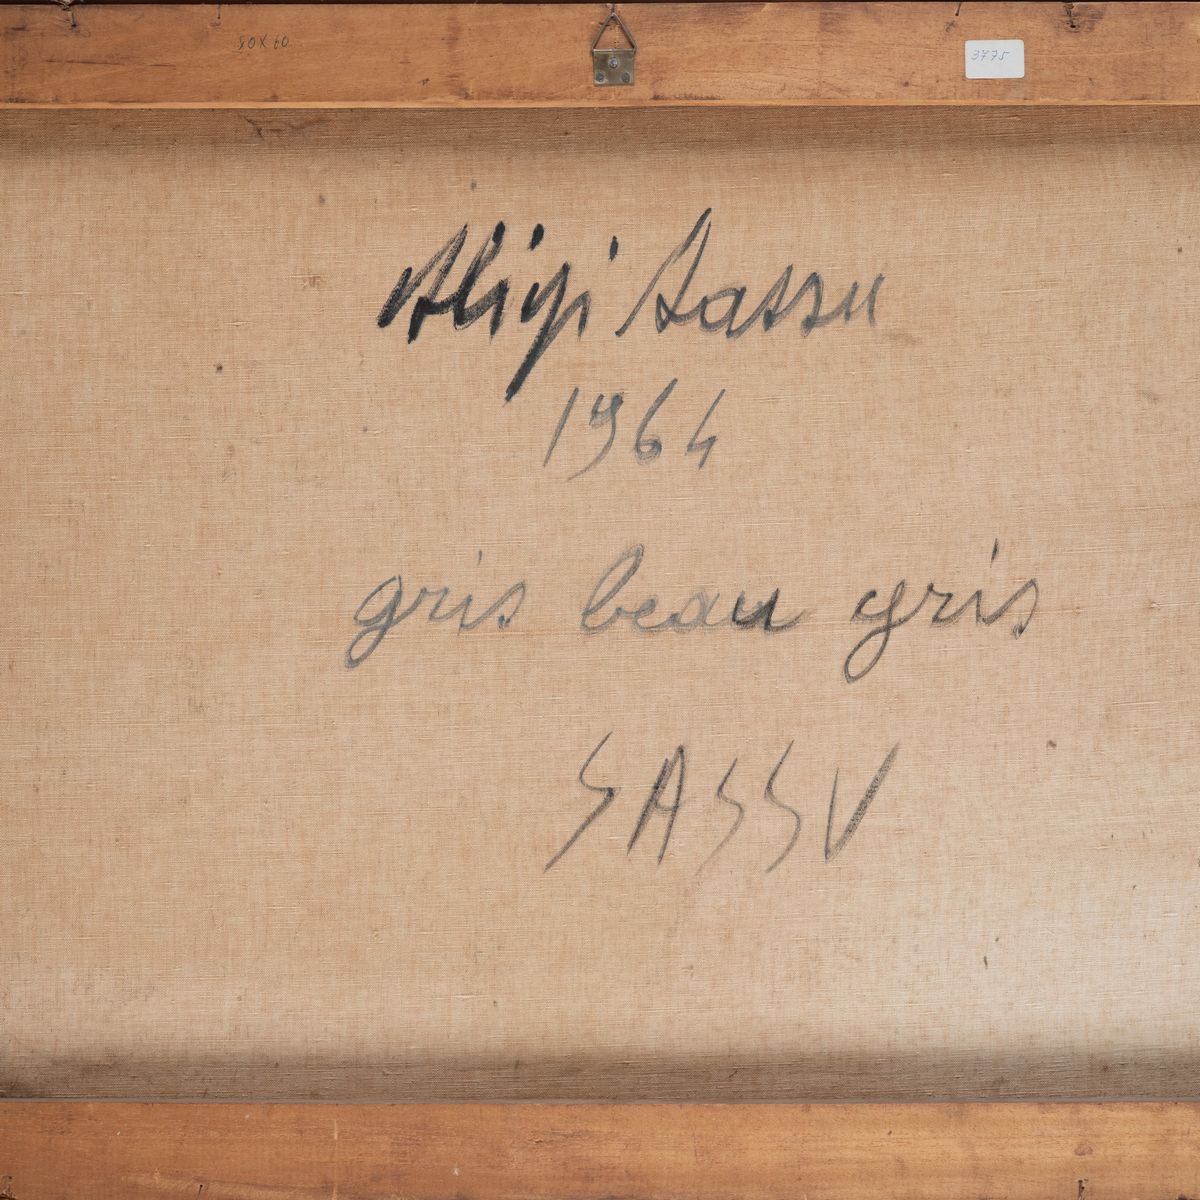 80X60
3775
Aligi Sassu
1964
gris beau gris
SASSU